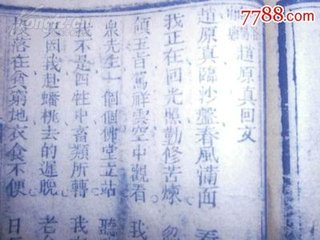 7788.com
趙原真回文
趙原真臨沙盤春風滿面
我正在回光照勤修苦煉
領玉旨駕祥雲空中觀看
泉先生一個個佛堂立站
我不是四牲中畜類所轉
因我赴蟠桃去的遲晚
落在貧窮地衣食不便